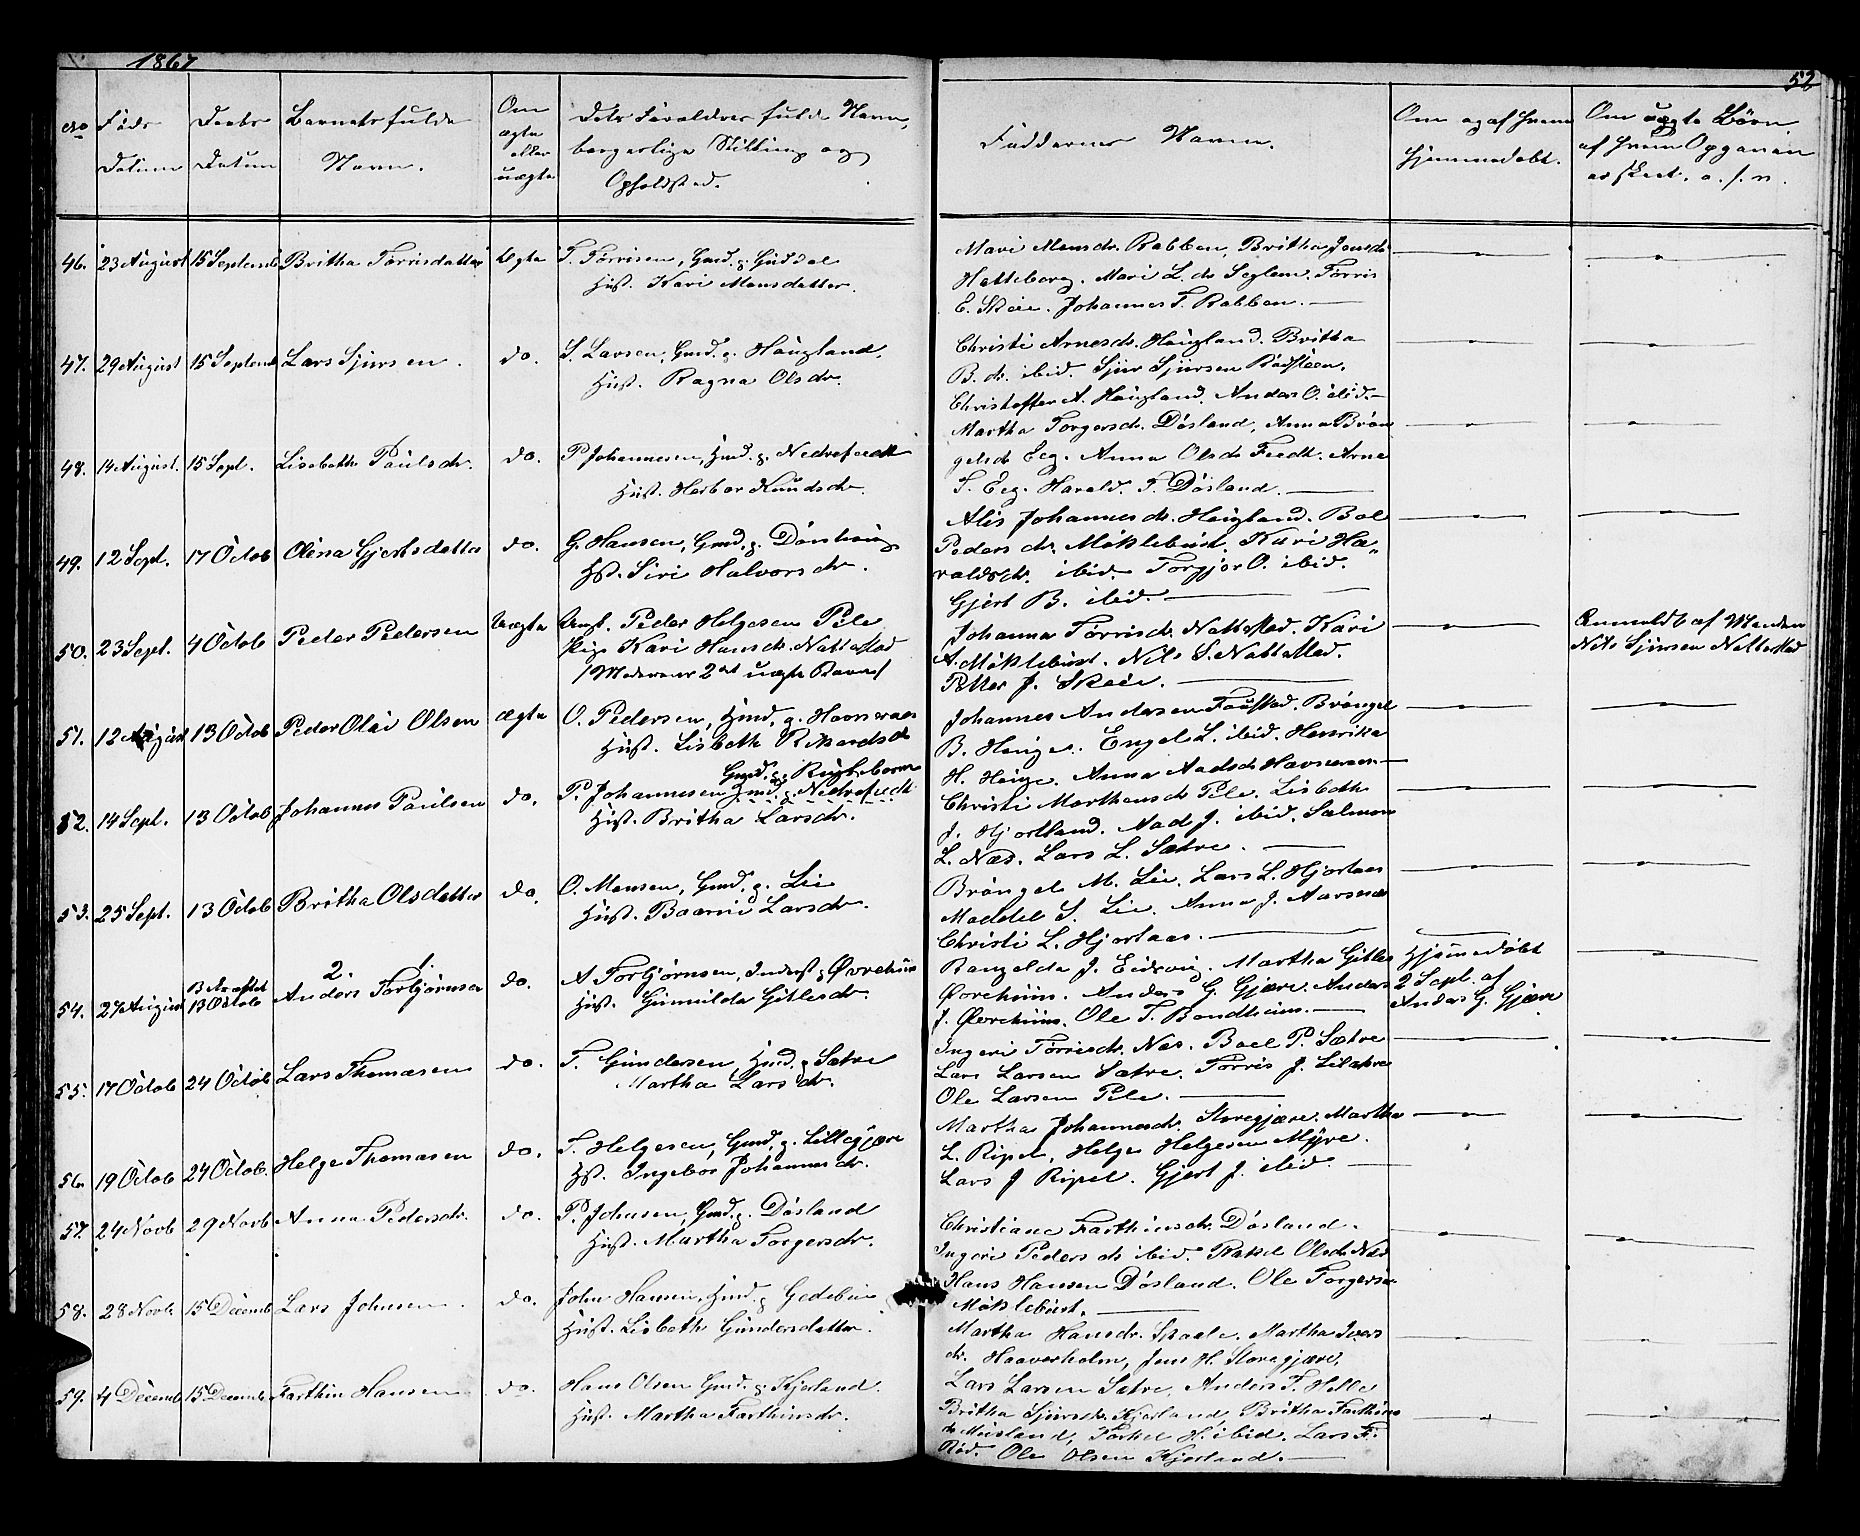 1867
52
No
Føds
Datum
Daabs
Datum
Barnets fulde
Navn.
Om
ægte
eller
uægte
Dets Forældres fulde Navn,
borgerlige Stilling og
Opholdsted.
Faddernes Navne.
Om og af hvem
hjemmedøbt.
Om uægte Børn
af hvem Opgaven
er skeet. o.s.v.
46. 23 August 15 Septemb Britha Tørrisdatter Ægte T. Tørrisen, Gmd. g. Guddal
Hust. Kari Monsdatter.
Mari Monsdr. Rabben, Britha Jensdr
Hatteberg. Mari L. dr Seglem. Tørris
E. Skeie. Johannes T. Rabben.
47. 29 August 15 Septemb Lars Sjursen. do. S. Larsen, Gmd. g. Haugland.
Hust. Ragna Olsdr.
Christi Arnesdr. Haugland. Britha
B. dr. ibid. Sjur Sjursen
Christoffer A. Haugland. Anders O. ibid.
48. 14 August. 15 Sept. Lisebeth Paulsdr. do. P. Johannesen, Hmd. g. Nedrefiedt
Hust. Herbor Knudsdr.
Martha Torgersdr. Døsland, Anna Brøn
gelsdr Eeg. Anna Olsdr Fiedt. Arne
S. Eeg. Harald T. Døsland.
49. 12 Sept. 17 Octob Olina Gjertsdatter do. G. Hansen, Gmd. g.
Hst. Siri Halvorsdr.
Alis Johannesdr. Haugland. Boel
Pedersdr. Møklebust. Kari Ha„
raldsdr. ibid. Torgjer O. ibid.
Gjert B. ibid.
50. 23 Sept. 4 Octob Peder Pedersen Uægte Ungk. Peder Helgesen Pele
Pige Kari Hansdr. Nattestad
/Moderens 2det uægte Barn/
Johanna Tørrisdr. Nattestad. Kari
A. Møklebust. Nils S. Nattestad.
Petter J. Skeie.
Anmeldt af Manden
Nils Sjursen Nattestad
51. 12 August 13 Octob Peder Olai Olsen ægte O. Pedersen, Hmd. g. Havneraas
Hust. Lisbeth Rikardsdr
Johannes Andersen Faustad. Brøngel
B. Hauge. Engel L. ibid. Henrika
H. Hauge. Anna Aadsdr Havneraas.
52. 14 Sept. 13 Octob Johannes Paulsen do. P. Johannesen Hmd. g. Nedrefiedt
Hust. Britha Larsdr.
Christi Marthensdr Pele. Lisbeth
J. Hjortland. Aad J. ibid. Salmon
L. Næs. Lars L. Sætre.
53. 25 Sept. 13 Octob Britha Olsdatter do. O. Monsen, Gmd. g. Lie
Hust. Baarnie Larsdr.
Brøngel M. Lie. Lars L. Hjortaas
Maddel S. Lie. Anna J. Aarsnæs
Christi L. Hjortaas.
54. 27 August 13 Octob
2. 1.
Anders Torbjørnsen do. A. Torbjørnsen, Inderst g. Øvrehuus
Hust. Gunnilda Gitlesdr.
Rangelda J. Eidsvig. Martha Gitles
Øvrehuus. Anders G. Gjære. Anders
J. Øvrehuus. Ole T. Bondhuus.
Hjemmedøbt
2 Sept. af
Anders G. Gjære
55. 17 Octob 24 Octob Lars Thomasen do. T. Gundersen, Hmd. g. Sætre
Martha Larsdr.
Ingeri Tørrisdr. Næs. Boel P. Sætre
Lars Larsen Sætre. Tørris J. Lilætre
Ole Larsen Pele.
56. 19 Octob 24 Octob. Helge Thomasen do. T. Helgesen, Gmd. g. Lillegjære
Hst. Ingebor Johannesdr.
Martha Johannesdr. Storegjære. Martha
L. Ripel, Helge Helgesen Myre.
Lars J Ripel. Gjert J. ibid.
57. 24 Novb 29 Novb Anna Pedersdr. do. P. Johnsen, Gmd. g. Døsland
Hust. Martha Torgersdr.
Christiane Farthinsdr. Døsland.
Ingeri Pedersdr ibid. Rakel Olsdr Næs
Hans Hansen Døsland. Ole Torgersen
Møklebust.
58. 28 Novb 15 Decemb Lars Johnsen. do. John Hansen, Hmd. g.
Hust. Lisbeth Gundersdatter.
Martha Hansdr. Skaale. Martha Ivers
dr. Haaversholm, Jens H. Storegjære,
Lars Larsen Sætre, Anders T. Helle
59. 4 Decemb 15 Decemb Farthin Hansen do. Hans Olsen Gmd. g. Kjerland.
Hust. Martha Farthinsdr.
Britha Sjursdr. Kjerland, Britha Farthins
dr Musland, Torkel H. ibid. Lars F.
Rød. Ole Olsen Kjerland.